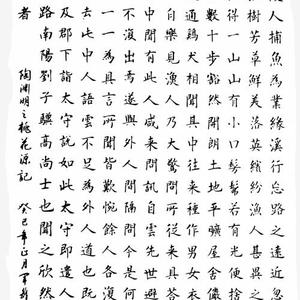 人捕魚為業緣溪行忘路之遠近忽
樹芳草鮮美落英繽紛漁人甚異之
得一山山有小口髣髴若有光便捨
數十步豁然開朗土地平曠屋舍儼
通鷄犬相聞其中往來種作男女衣
自樂見漁人乃大驚問所從來具答
中聞有此人咸來問訊自雲先世避
不復出焉遂與外人間隔問今是何
一一為具言所聞皆歎惋餘人各復
去此中人語雲不足為外人道也既
及郡下詣太守說如此太守即遣人
路南陽劉子驥高尚士也聞之欣然
者 陶淵明之桃花源記 癸巳年正月